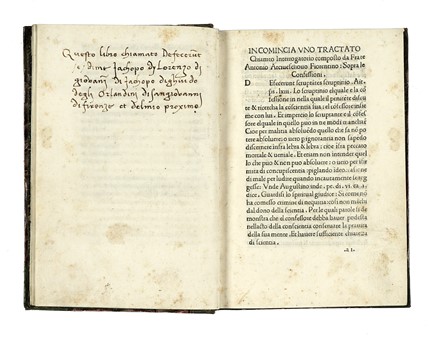 Questo libro chiamato Defecerut
e di me Jachopo di Lorenzo di
giovanj di Jachopo di ghuido
degli Orlandini di sangiovanni
di firenze et del mio proximo
INCOMINCIA VNO TRACTATO
Chiamato Interrogatorio composto da Frate
Antonio Arciuescouo Fiorentino: Sopra le
Confessioni.
D Efecerunt scruptantes scruptinio. Ait
psi. lxiii. Lo scruptinio elquale e la cō
fessione in nella quale il penitente discu
te & ricircha la conscientia sua: & el confessore in
sieme con lui. Et impercio lo scruptante e el confes
sore el quale in questo puo in modi mancha
Cioe per malitia absoluendo quello che sa nō po
tere absoluere: o uero in quanto non appieno
discerne infra lebra & lebra: cioe infra peccato
mortale & ueniale. Et etiam non intender quel
lo che puo & non puo absoluere: o uero in que
sto per di concupiscientia
di male per ludire quando incautamente interro
gasse: Vnde Augustino
Guardisi lo spiritual giudice: Si come nō
ha comesso crimine di nequitia: cosi non māchi
dal dono della scientia. Per le quali parole si de
mostra che el confessore debba hauer
nellacto della conscientia conseruare la puritade
della sua mente. Et hauere sufficiente chiarezza
di scientia.
a i.